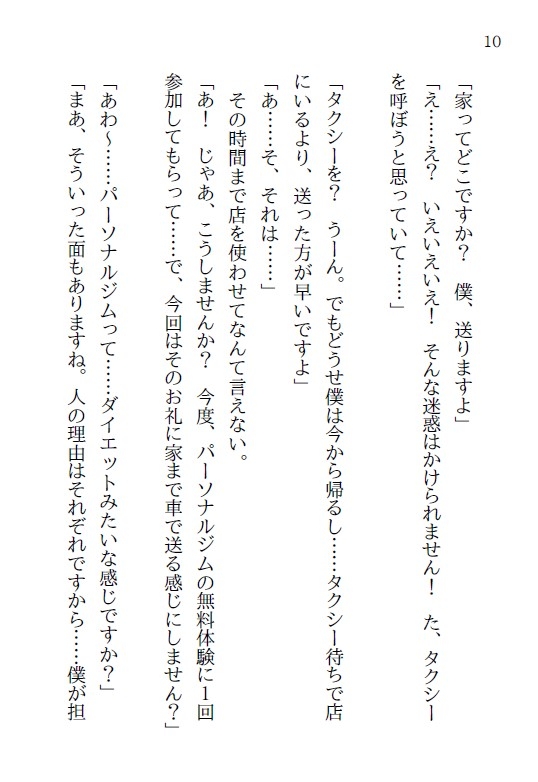 10
「家ってどこですか？　僕、送りますよ」
「え……え？　いえいえいえ！　そんな迷惑はかけられません！　た、タクシー
を呼ぼうと思っていて……」
「タクシーを？　うーん。でもどうせ僕は今から帰るし……タクシー待ちで店
にいるより、送った方が早いですよ」
「あ……そ、それは……」
　その時間まで店を使わせてなんて言えない。
「あ！　じゃあ、こうしませんか？　今度、パーソナルジムの無料体験に１回
参加してもらって……で、今回はそのお礼に家まで車で送る感じにしません？」
「あわ〜……パーソナルジムって……ダイエットみたいな感じですか？」
「まあ、そういった面もありますね。人の理由はそれぞれですから……僕が担